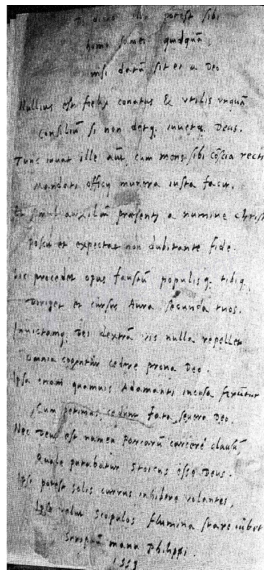 potest sibi
homo sumere quidquā
nisi datū sit ei a Deo
Nullius est felix conatus & utilis unquā
Consiliū si non detq; iuvetq; Deus.
Tunc iuvat ille aūt cum mens sibi cōscia recti
Mandati officij munera iusta facit,
Et simul auxiliū praesenti a numine Christi
poscit et expectat non dubitante fide.
Sic procedet opus faustū populis q; tibiq;
Diriget et cursus Aura secunda tuos.
Invictamq; Dei dextrā vis nulla repellet
Omnia cogentur cedere prona Deo.
Ipsa etiam quamvis Adamanti incisa ferūtur
Cum petimus cedunt fata severa Deo.
Nec Deus est numen Parcarū carcere clausū,
Quale putabatur Stoicus esse Deus.
Ipse potest solis currus inhibere volantes,
Ipse velut scopulos flumina stare iubet.
manu Philippi.